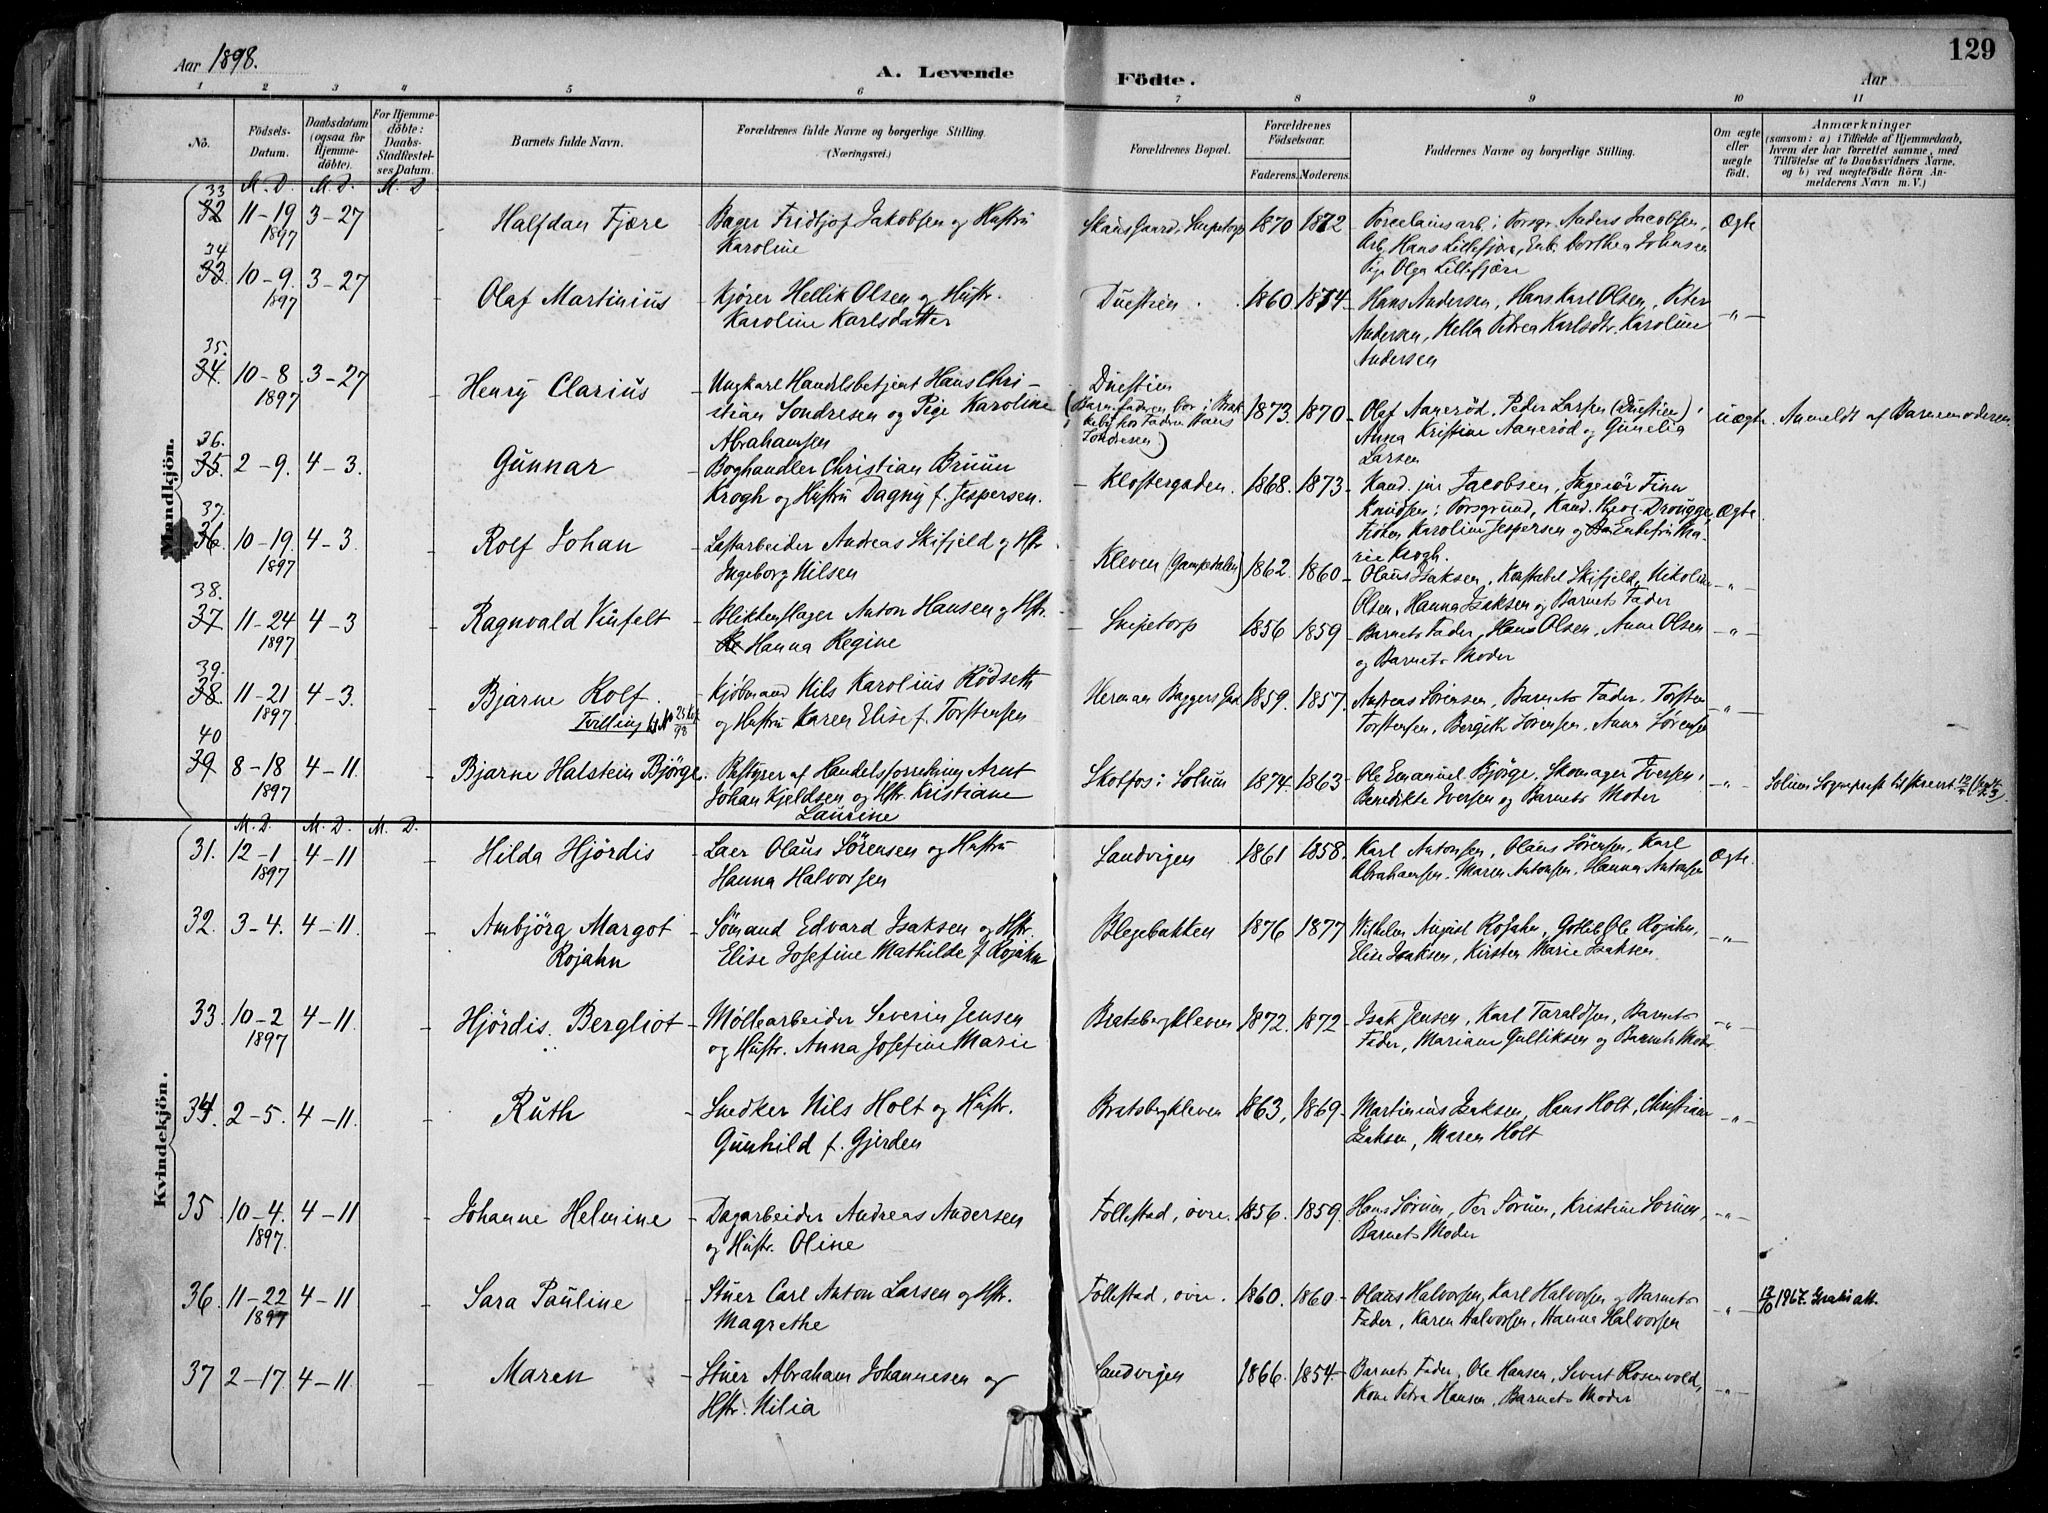 129
Aar 1898.
A. Levende Födte.
Aar
1 2 3 4 5 6 7 8 9 10 11
No.
Födsels-Datum.
Daabsdatum (ogsaa for Hjemmedöbte).
For Hjemmedöbte: Daabs-Stadfæstelses Datum.
Barnets fulde Navn.
Forældrenes fulde Navne og borgerlige Stilling. (Næringsvei.)
Forældrenes Bopæl.
Forældrenes Födselsaar.
Faderens. Moderens.
Faddernes Navne og borgerlige Stilling.
Om ægte eller uægte födt.
Anmærkninger
(saasom: a) i Tilfælde af Hjemmedaab, hvem der har forrettet samme, med Tilföielse af to Daabsvidners Navne, og b) ved uægtefödte Börn Anmelderens Navn m. V.)
Mandkjön.
M. D. M. D. M. D
33
32 11-19 1897 3-27 Halfdan Fjære - Bager Fridtjof Jakobsen og Hustru Karoline - Skausgaard, Snipetorp 1870 1872 - Porcelainsarb. i Porsgr. Anders Jacobsen, Arb. Hans Lillefjære, Enk. Dorthea Johnsen Pige Olga Lillefjære Ægte
34
33 10-9. 1897 3-27 Olaf Martinius - Kjører Hellik Olsen og Hustr. Karoline Karlsdatter - Duestien 1860. 1874 - Hans Andersen, Hans Karl Olsen, Peter Andersen, Hella Petrea Karlsdtr. Karoline Andersen -„-
35.
34. 10-8 1897 3-27 Henry Clarius - Ungkarl Handelsbetjent Hans Christian Sondresen og Pige Karoline Abrahamsen - Duestien (Barnefaderen bor i Brekkeby hos Faderen Hans Sondresen) 1873. 1870 - Olaf Aanerød, Peder Larsen (Duestien), Anna Kristine Aanerød og Gunelia Larsen uægte. Anmeldt af Barnemoderen
36.
35. 2-9. 4-3. Gunnar - Boghandler Christian Bruun Krogh og Hustru Dagny f. Jespersen. - Klostergaden. 1868. 1873 - Kand. jur Jacobsen, Ingeniör Finn Knudsen i Porsgrund, Kand. theol. Drougge, Frøken Karoline Jespersen og Enkefru Marie Krogh. Ægte
37.
36. 10-19. 1897 4-3 Rolf Johan - Lastarbeider Andreas Skifjeld og Hstr Ingeborg Nilsen - Kleven (Gampedalen) 1862. 1860 - Olaus Isaksen, Konstabel Skifjeld, Nikoline Olsen, Hanna Isaksen og Barnets Fader -„-
38.
37 11-24 1897 4-3 Ragnvald Vinfelt - Blikkenslager Anton Hansen og Hstr. Hanna Regine - Snipetorp 1856 1859 - Barnets Fader, Hans Olsen, Anne Olsen og Barnets Moder -„-
39.
38. 11-21 1897 4-3. Bjarne Rolf. Tvilling - Kjøbmand Nils Karolius Rödseth og Hustru Karen Elise f. Torstensen - Herman Baggers Gad 1859. 1857. - Andreas Sörensen, Barnets Fader, Torsten Torstensen, Bergith Sörensen, Anna Sørensen -„-
40
39 8-18 1897 4-11. - Bjarne Halstein Bjørge. - Bestyrer af Handelsforretning Arnt Johan Kjeldsen og Hstr. Kristiane Laurine - Skotfos i Solum 1874. 1863 - Ole Emanuel Björge, Skomager Iversen, Benedikte Iversen og Barnets Moder -„- Solum Sogneprest tilskrevet
Kvindekjön.
M. D. M. D. M. D.
31. 12-1 1897 4-11 - Hilda Hjördis - Laer Olaus Sörensen og Hustru Hanna Halvorsen - Sandvigen 1861 1858. - Karl Antonsen, Olaus Sörensen, Karl Abrahamsen, Maren Antonsen, Hanna Antonsen Ægte.
32. 3-4. 4-11 - Ambjörg Margot Rojahn - Sömand Edvard Isaksen og Hstr. Elise Josefine Mathilde f Rojahn - Blegebakken 1876 1877 - Wilhelm August Rojahn, Gotlib Ole Rojahn, Elise Isaksen, Kirsten Marie Isaksen. -„-
33. 10-2 1897 4-11. - Hjördis Bergliot - Møllearbeider Severin Jensen og Hustr. Anna Josefine Marie - Bratsbergkleven 1872. 1872 - Isak Jensen, Karl Taraldsen, Barnets Fader, Mariane Gulliksen og Barnets Moder -„-
34. 2-5. 4-11. - Ruth - Snedker Nils Holt og Hustr. Gunhild f. Gjerden - Bratsbergkleven 1863, 1869 - Martinius Isaksen, Hans Holt, Christiane Isaksen, Maren Holt -„-
35 10-4. 1897. 4-11 - Johanne Helmine - Dagarbeider Andreas Andersen og Hustr. Oline - Follestad, øvre. 1856. 1859. - Hans Sörum, Per Sörum, Kristine Sörum, Barnets Moder -„-
36 11-22 1897 4-11 - Sara Pauline - Stuer Carl Anton Larsen og Hstr. Magrethe - Follestad, övre. 1860. 1860 - Olaus Halvorsen, Karl Halvorsen og Barnets Fader, Karen Halvorsen, Hanna Halvorsen -„- 12/10 1967. Gratis att.
37 2-17. 4-11. - Maren - Stuer Abraham Johannesen og Hstr. Nilia - Sandvigen 1866. 1854. - Barnets Fader, Ole Hansen, Sivert Rosenvold, Kone Petra Hansen, Barnets Moder -„-